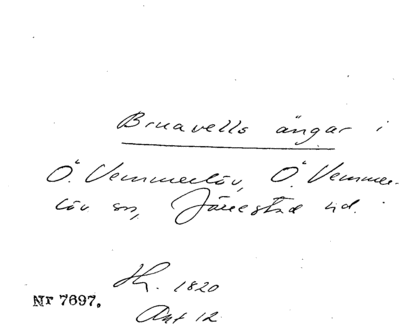 Bruavells ängar i
Ö. Vemmerlöv, Ö. Vemmer-
löv sn, Järrestad hd.
H. 1820
Nr 7697.
Ant 12